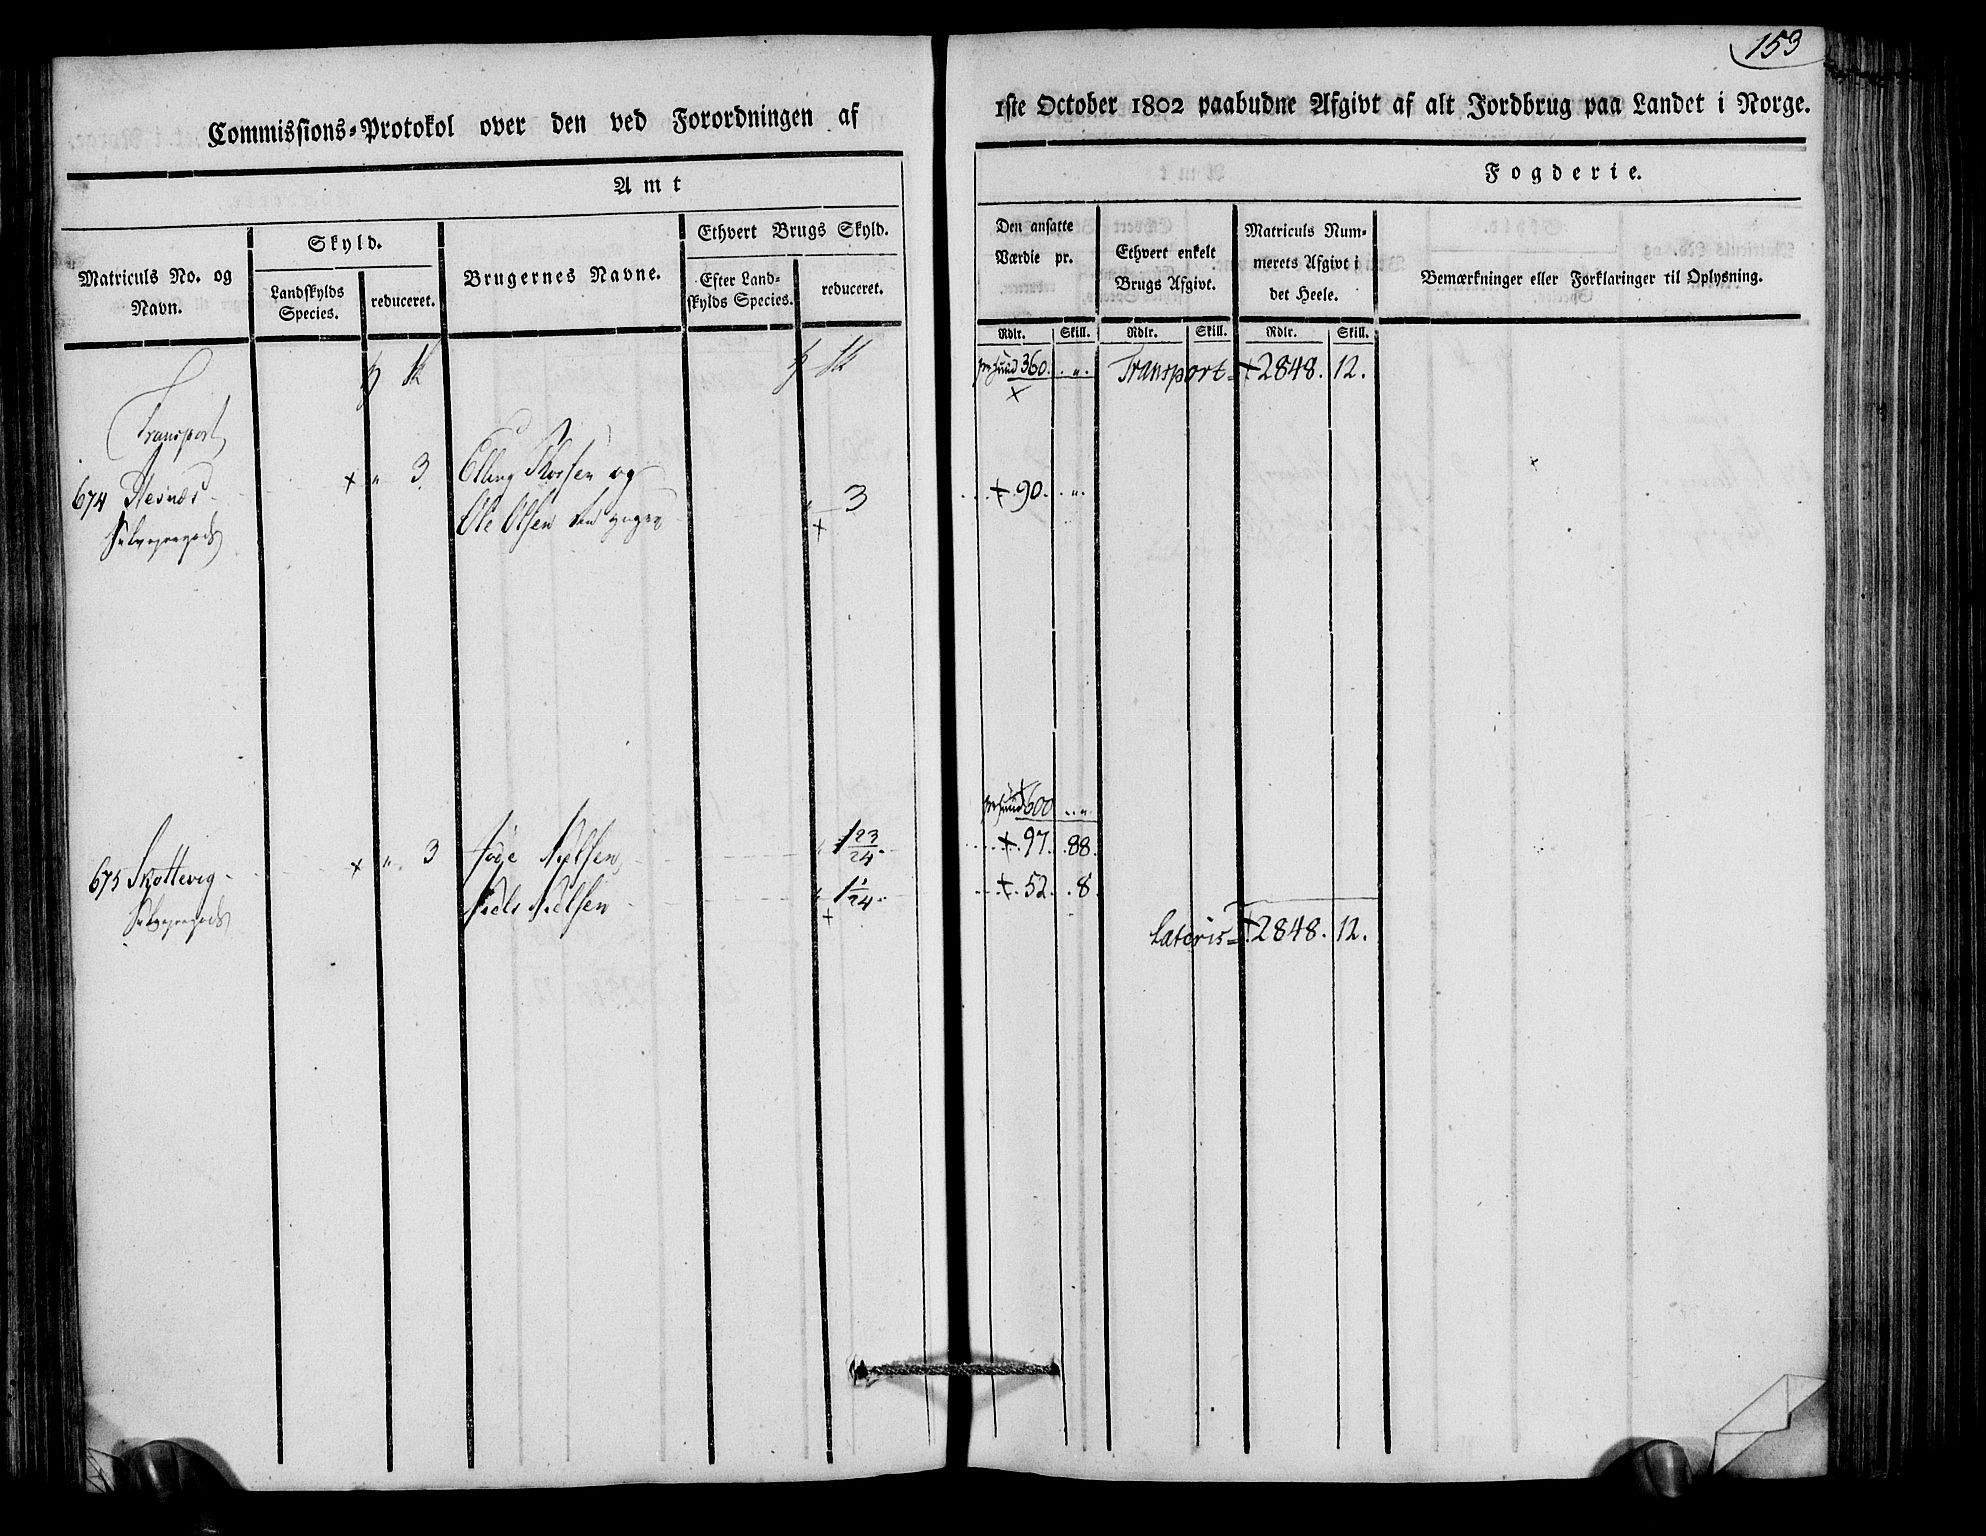 153
Commissions-Protokol over den ved Forordningen af 1ste October 1802 paabudne Afgivt af alt Jordbrug paa Landet i Norge.
Amt
Fogderie.
Matriculs No. og Navn.
Skyld.
Landskylds Species.
reduceret.
Brugernes Navne.
Ethvert Brugs Skyld.
Efter Landskylds Species.
reduceret.
Den ansatte Værdie pr.
Rdlr. Skill.
Ethvert enkelt Brugs Afgivt.
Rdlr. Skill.
Matriculs Nummerets Afgivt i det Heele.
Rdlr. Skill.
Bemærkninger eller Forklaringer til Oplysning.
pr huud 360. „. Transport = 2848. 12.
Transport
674 „ 3 Elling og
Selveyergods Ole Olsen „ 3 90. „.
pr huud 600 „.
675 Skottevig „ 3 „ 1 23/24 97. 88.
Selveyergods Niels Nielsen „ 1 1/24 52. 8.
Lateris = 2848. 12.